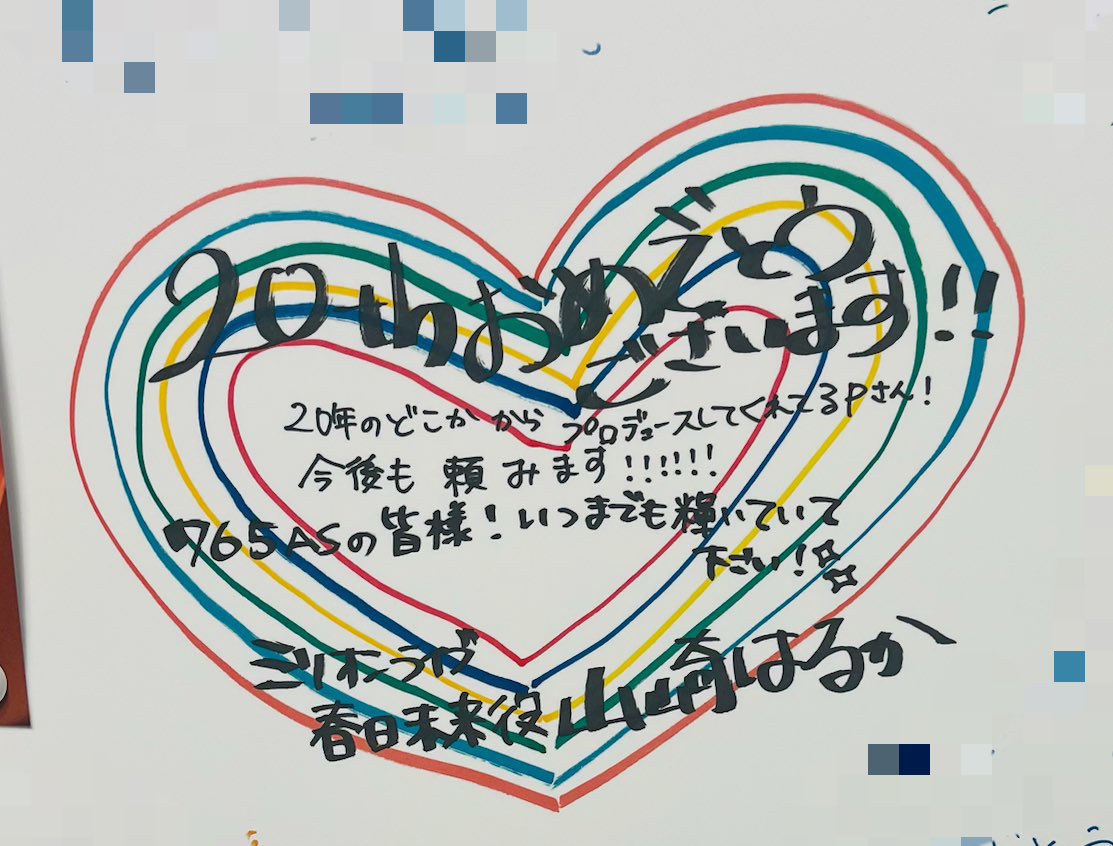 20thおめでとう
ございます!!
20年のどこかからプロデュースしてくれてるPさん!
今後も頼みます!!!!!!
765ASの皆様!いつまでも輝いていて
下さい!
ミリオンラヴ
春日未来役 山崎はるか